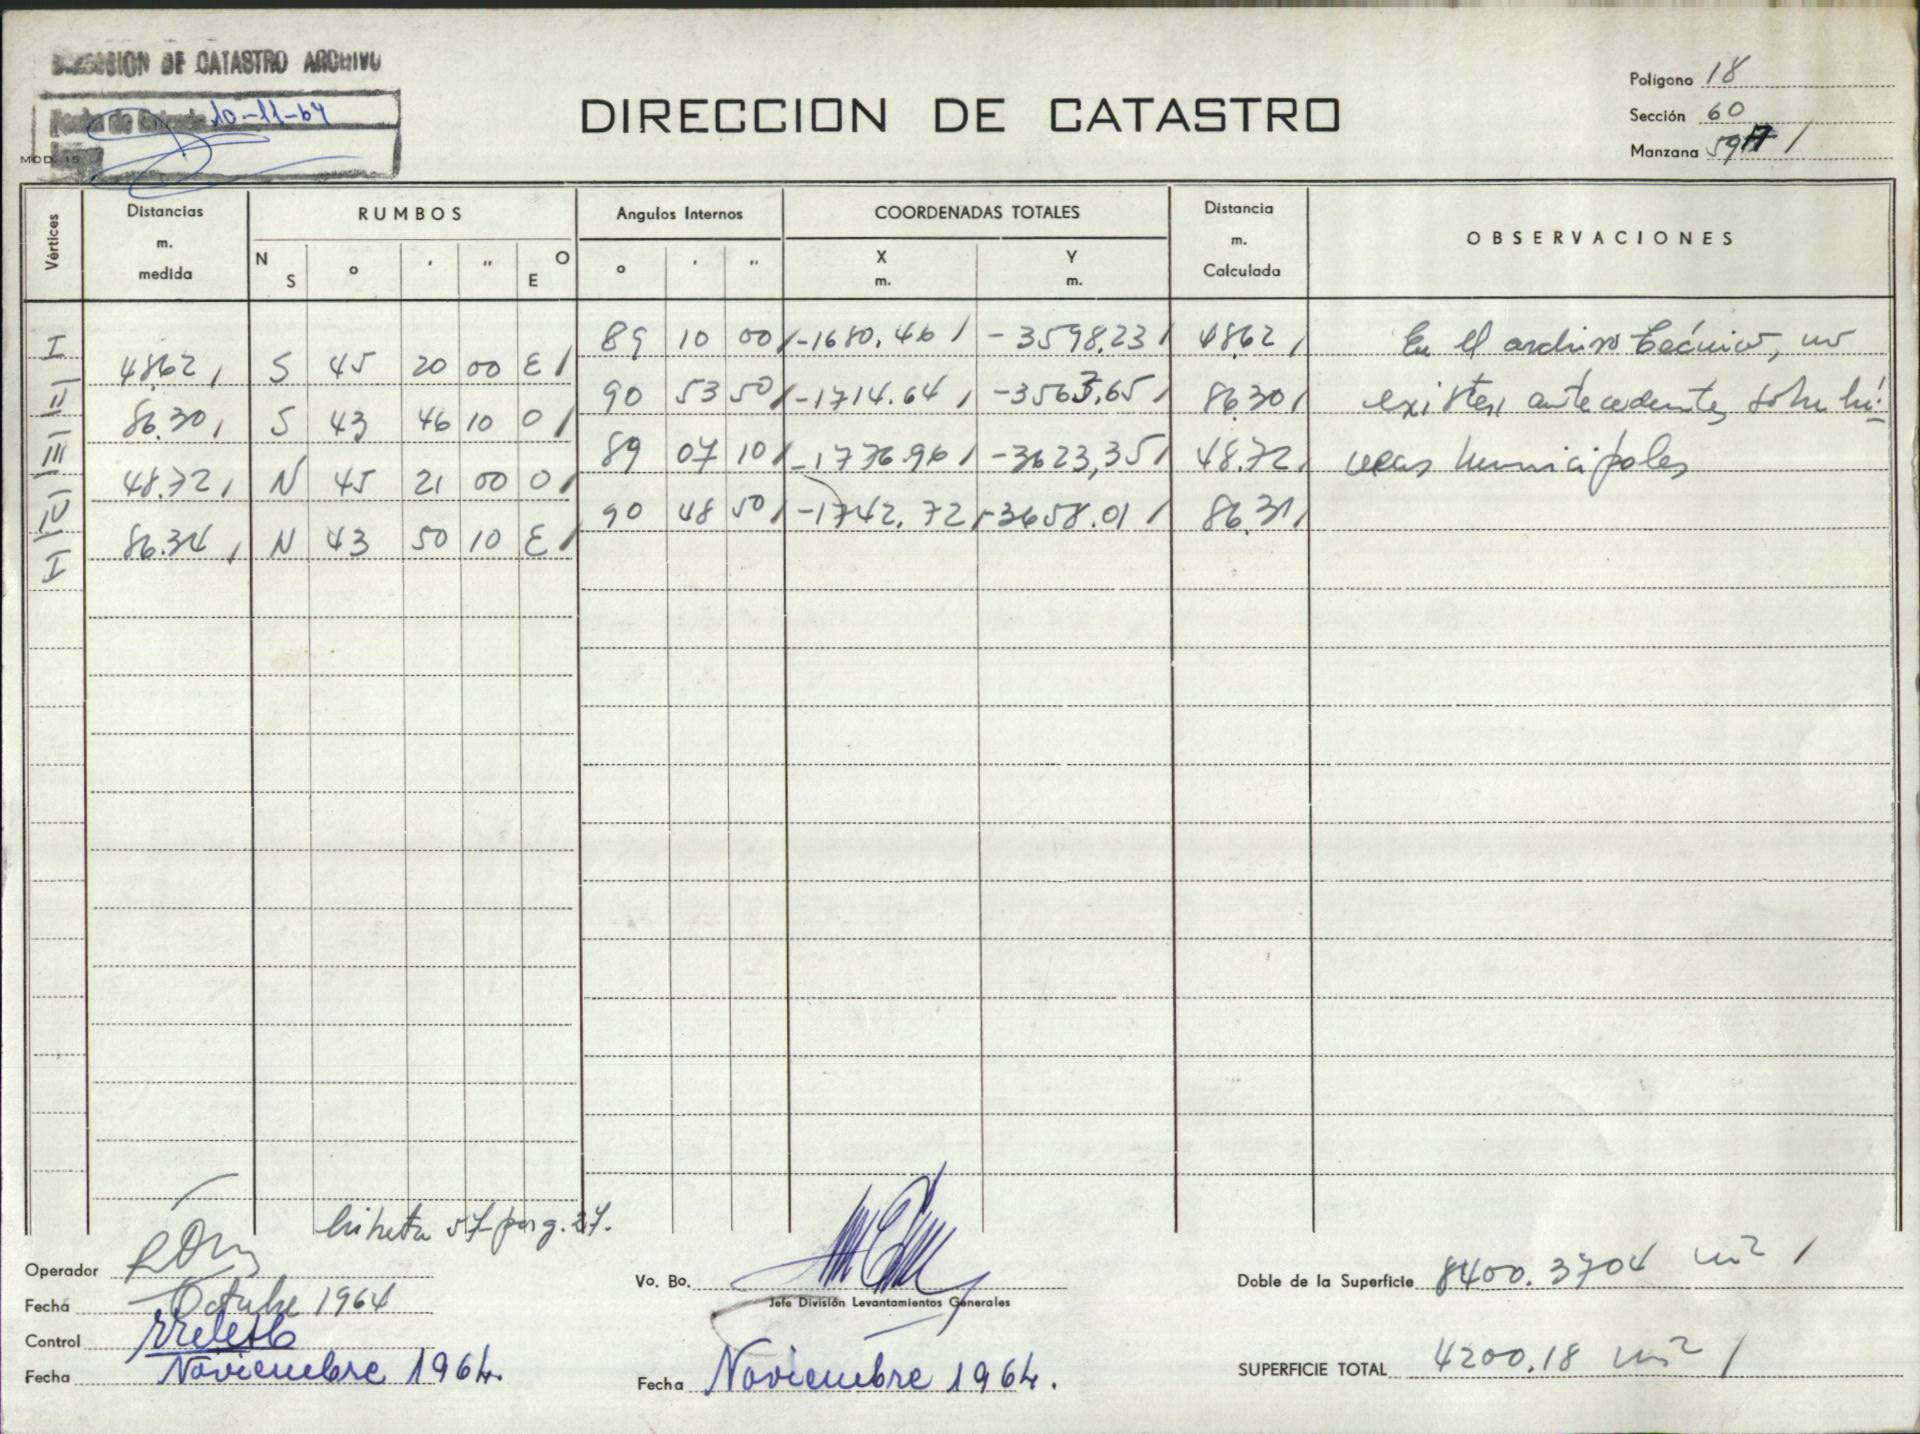 DIRECCION DE CATASTRO ARCHIVO
Fecha de Entrada 10-11-64
MOD. 15
DIRECCION DE CATASTRO
Polígono 18
Sección 60
Manzana 59A /
Vértices
Distancias m. medida
RUMBOS
N S ° ' " O E
Angulos Internos
° ' "
COORDENADAS TOTALES
X m. Y m.
Distancia m. Calculada
OBSERVACIONES
I 89 10 00 / -1680.46 / -3598.23 / 48.62 / En el archivo técnico, no
48.62 / S 45 20 00 E /
II 90 53 50 / -1714.64 / -3563.65 / 86.30 / existen antecedentes sobre lí-
86.30 / S 43 46 10 O /
III 89 07 10 / -1776.96 / -3623,35 / 48.72 / neas municipales
48.72 / N 45 21 00 O /
IV 90 48 50 / -1742.72 / -3658.01 / 86.31 /
86.34 / N 43 50 10 E /
I
libreta 57 pag. 27.
Operador
Fecha Octubre 1964
Control
Fecha Noviembre 1964.
Vo. Bo.
Jefe División Levantamientos Generales
Fecha Noviembre 1964.
Doble de la Superficie 8400.3704 m² /
SUPERFICIE TOTAL 4200.18 m² /